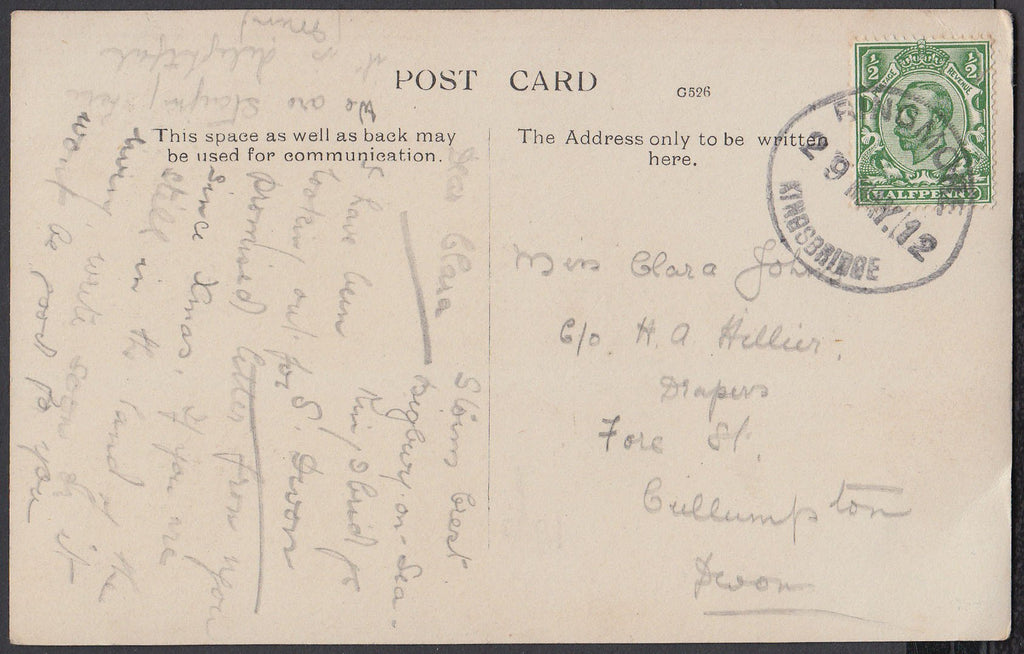 POST CARD
G526
This space as well as back may
be used for communication.
The Address only to be written
here.
½ ½
POSTAGE REVENUE
HALFPENNY
RINGMORE
29 MY.12
KINGSBRIDGE
Miss Clara Joh
C/o H. A Hillier.
Drapers
Fore St.
Cullumpton
Devon
Storm Crest
Bigbury-on-Sea
Kingsbridge
S. Devon
Dear Clara
I have been
looking out for
promised letter from you
since Xmas, If you are
still in the land of the
living write soon or it
wont be good for you
We are staying here
it is delightful